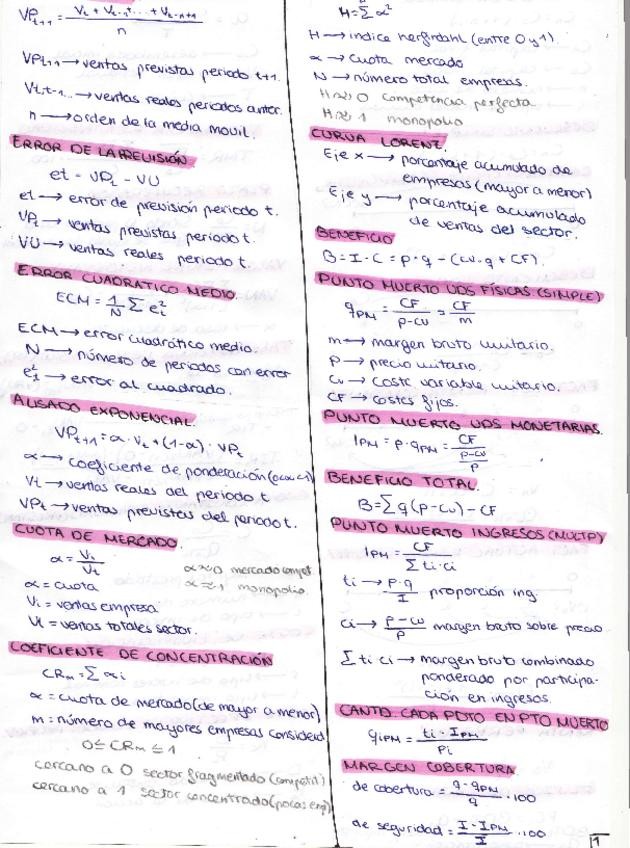 VPt+1 = Vt + Vt-1 + ... + Vt-n+1 / n
VPt+1 → ventas previstas periodo t+1.
Vt,t-1... → ventas reales periodos anter.
n → orden de la media movil.
ERROR DE LA PREVISIÓN
et = VPt - Vt
et → error de previsión periodo t.
VPt → ventas previstas periodo t.
Vt → ventas reales periodo t.
ERROR CUADRATICO MEDIO.
ECM = 1/N Σ ei²
ECM → error cuadrático medio.
N → número de periodos con error
ei² → error al cuadrado.
ALISADO EXPONENCIAL.
VPt+1 = α · Vt + (1-α) · VPt
α → coeficiente de ponderación (0<α<1)
Vt → ventas reales del periodo t
VPt → ventas previstas del periodo t.
CUOTA DE MERCADO.
α = Vi / Vt
α≈0 mercado compet.
α≈1 monopolio.
α = cuota
Vi = ventas empresa
Vt = ventas totales sector.
COEFICIENTE DE CONCENTRACIÓN
CRm = Σ αi
α = cuota de mercado (de mayor a menor)
m = número de mayores empresas consided
0 ≤ CRm ≤ 1
cercano a 0 sector fragmentado (competit)
cercano a 1 sector concentrado (pocas emp)
H = Σ α²
H → indice herfirdahl (entre 0 y 1)
α → cuota mercado
N → número total empresas.
H≈0 competencia perfecta
H≈1 monopolio
CURVA LORENZ.
Eje x → porcentaje acumulado de
empresas (mayor a menor)
Eje y → porcentaje acumulado
de ventas del sector.
BENEFICIO
B = I - C = p · q - (cv · q + CF).
PUNTO MUERTO UDS FÍSICAS (SIMPLE)
qPM = CF / p-cv = CF / m
m → margen bruto unitario.
P → precio unitario.
Cv → coste variable unitario.
CF → costes fijos.
PUNTO MUERTO UDS MONETARIAS.
IPM = p · qPM = CF / (p-cv / p)
BENEFICIO TOTAL.
B = Σ q (p - cv) - CF
PUNTO MUERTO INGRESOS (MULTP)
IPM = CF / Σ ti · ci
ti → p · q / I proporción ing.
ci → p - cv / p margen bruto sobre precio
Σ ti ci → margen bruto combinado
ponderado por participa-
ción en ingresos.
CANTD. CADA PDTO EN PTO MUERTO
qiPM = ti · IPM / Pi
MARGEN COBERTURA.
de cobertura = q - qPM / q · 100
de seguridad = I - IPM / I · 100
1